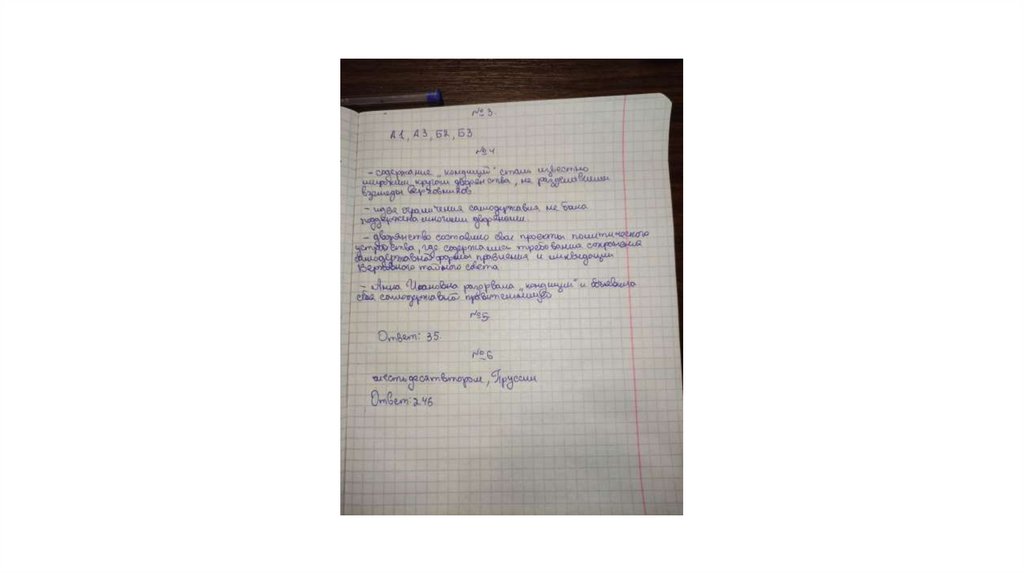 №3.
А1, А3, Б2, Б3
№4
- содержание "кондиций" стало известно
широким кругам дворянства, не разделявшим
взгляды верховников
- идея ограничения самодержавия не была
поддержана многими дворянами.
- дворянство составило свои проекты политического
устройства, где содержались требования сохранения
самодержавной формы правления и ликвидации
Верховного тайного совета
- Анна Иоановна разорвала "кондиции" и объявила
себя самодержавной правительницей
№5.
Ответ: 35.
№6
шестьдесятвтором, Пруссии
Ответ: 246